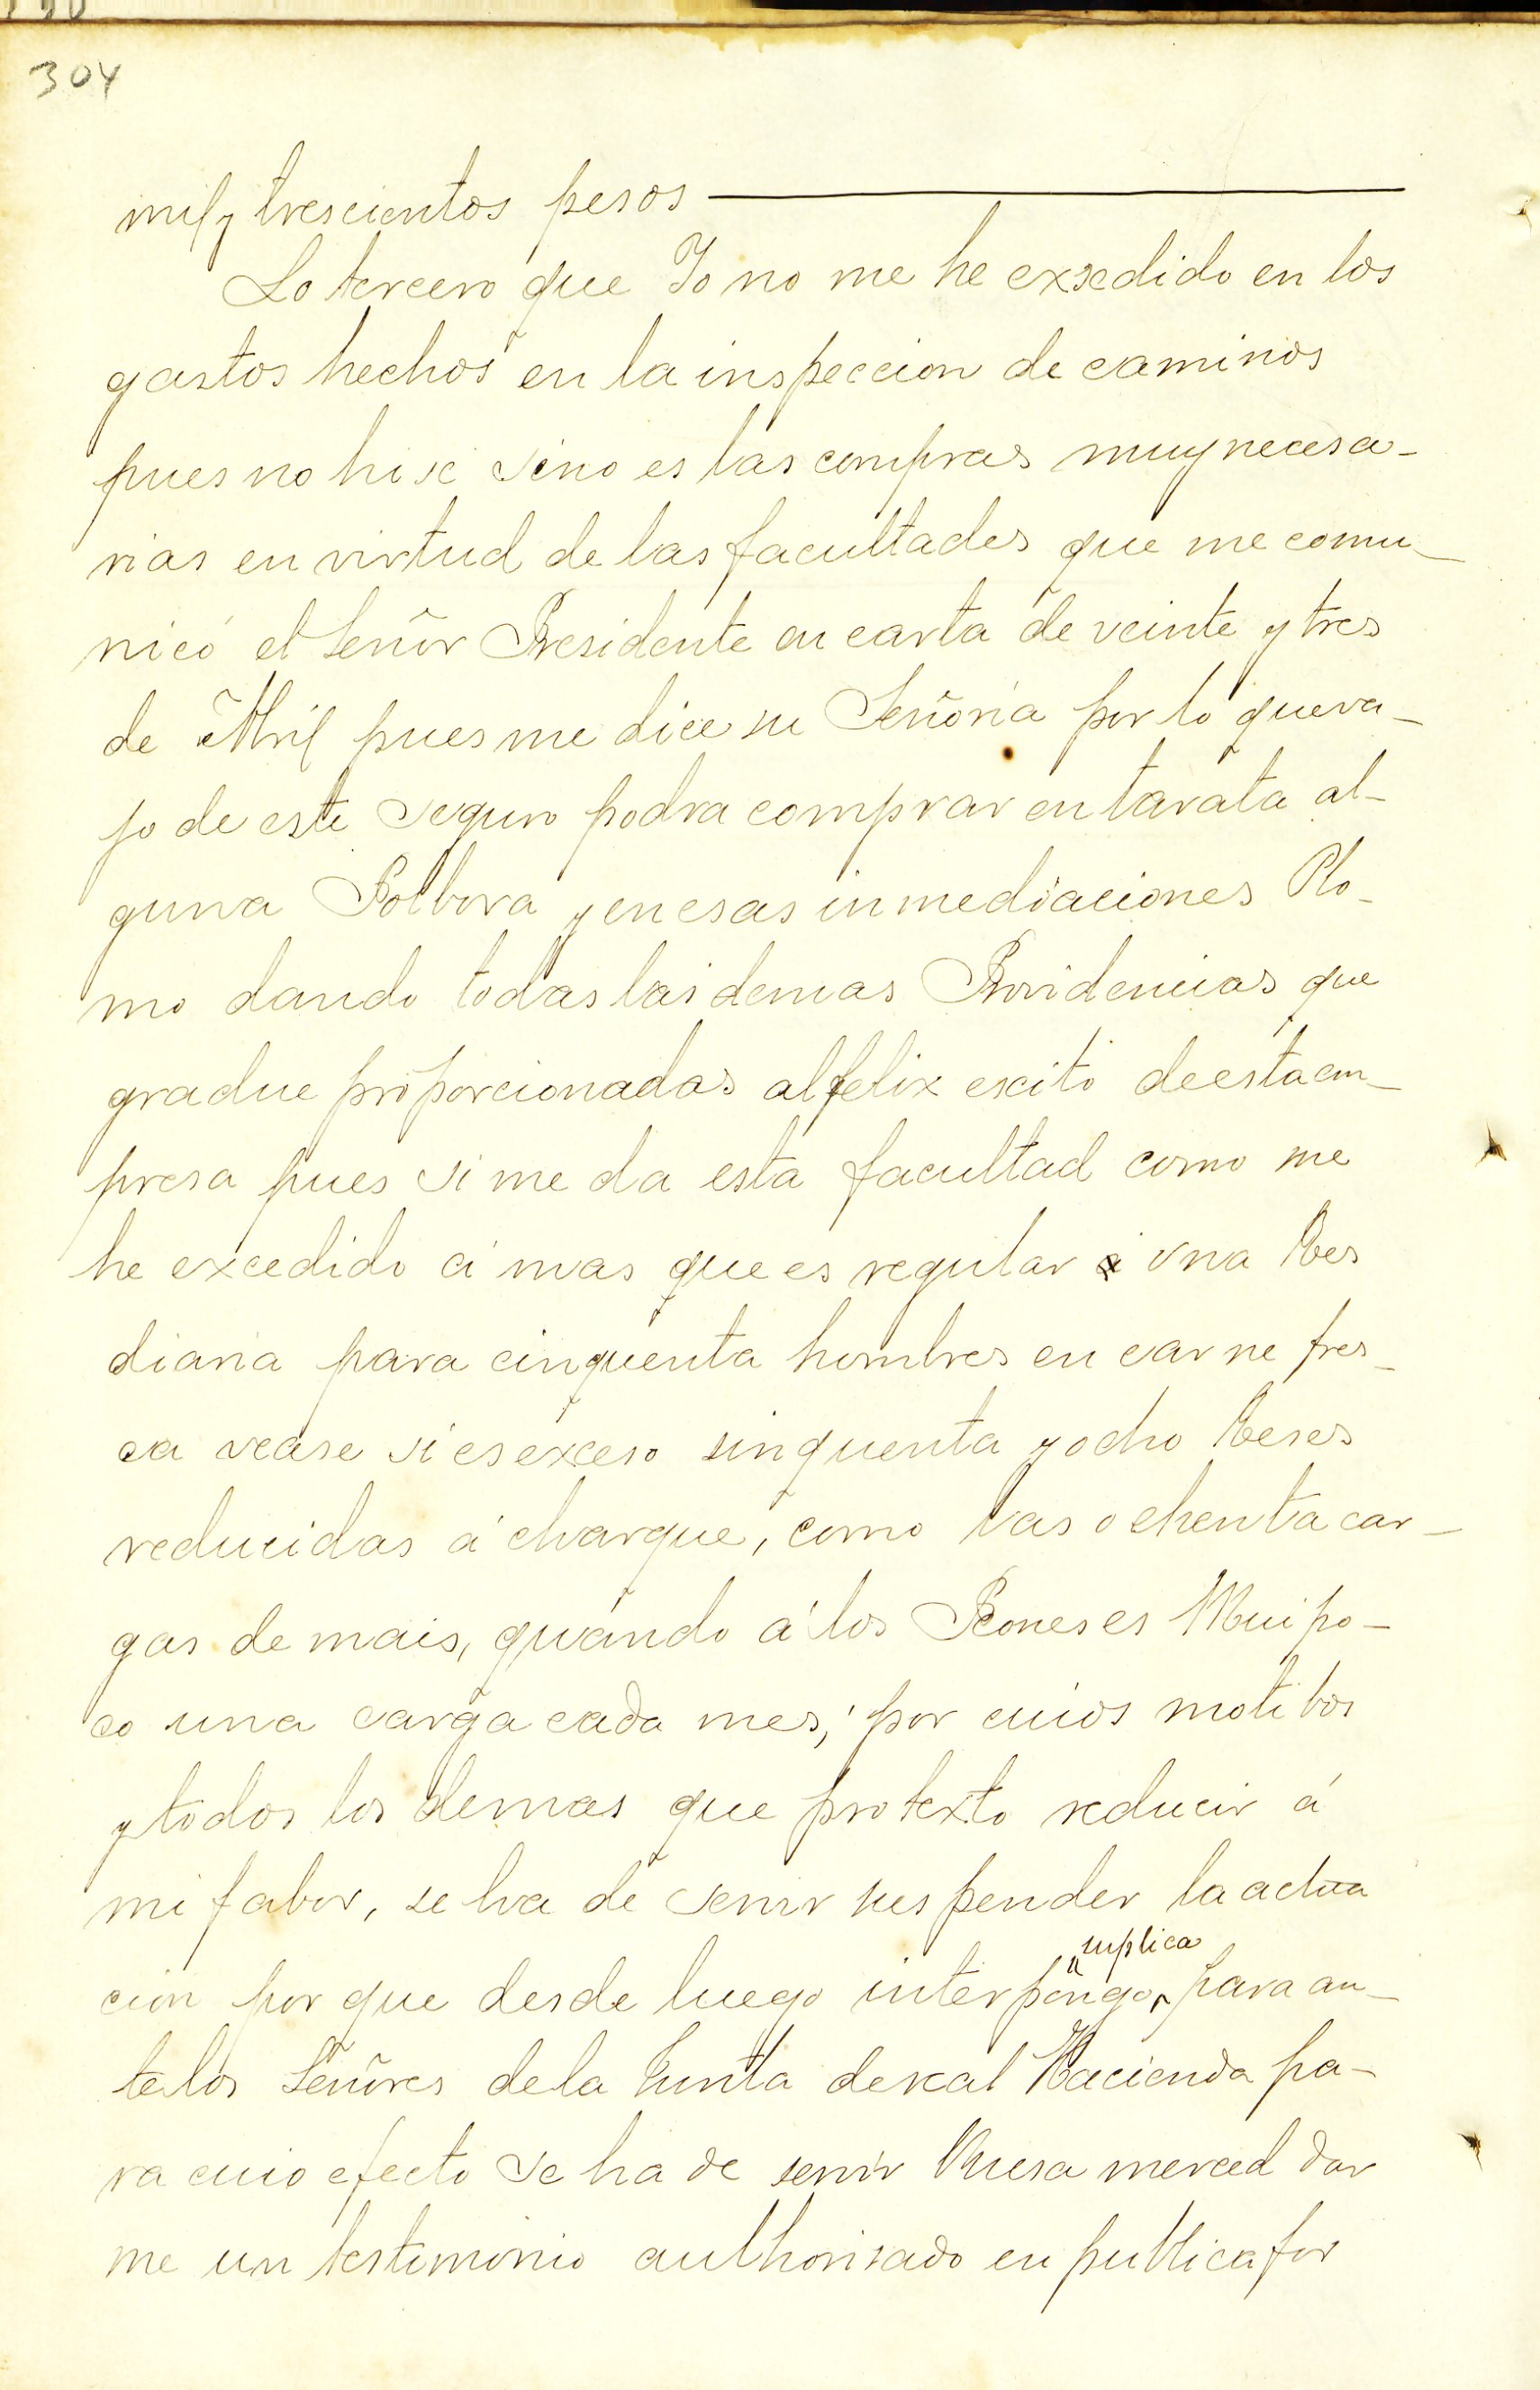 304
mil y trescientos pesos
Lo tercero que Yo no me he exsedido en los
gastos hechos en la inspeccion de caminos
pues no hise sino es las compras muy necesa-
rias en virtud de las facultades que me comu-
nicó el Señor Presidente en carta de veinte y tres
de Abril pues me dice su Señoria por lo que va-
jo de este seguro podra comprar en tarata al-
guna Polbora y en esas inmediaciones Plo-
mo dando todas las demas Providencias que
gradue proporcionadas al felix escito de esta em-
presa pues si me da esta facultad como me
he excedido á mas que es regular á vna Res
diaria para cinquenta hombres en carne fres-
ca vease si es exceso sinquenta y ocho Reses
reducidas á charque, como las ochenta car-
gas de mais, quando á los Peones es Mui po-
co una carga cada mes, por cuios motibos
y todos los demas que protexto reducir á
mi fabor, se ha de servir suspender la actua
cion por que desde luego interpongo, para an-
suplica
te los Señores de la Junta de real Hacienda pa-
ra cuio efecto se ha de servir Vuesa merced dar
me un testimonio authorisado en publica for